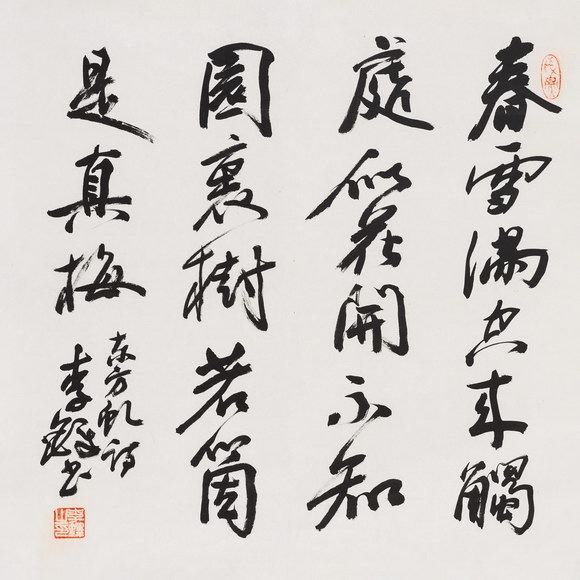 春雪滿空來觸
處似花開不知
園裏樹若箇
是真梅
东方虬诗
李鐸书